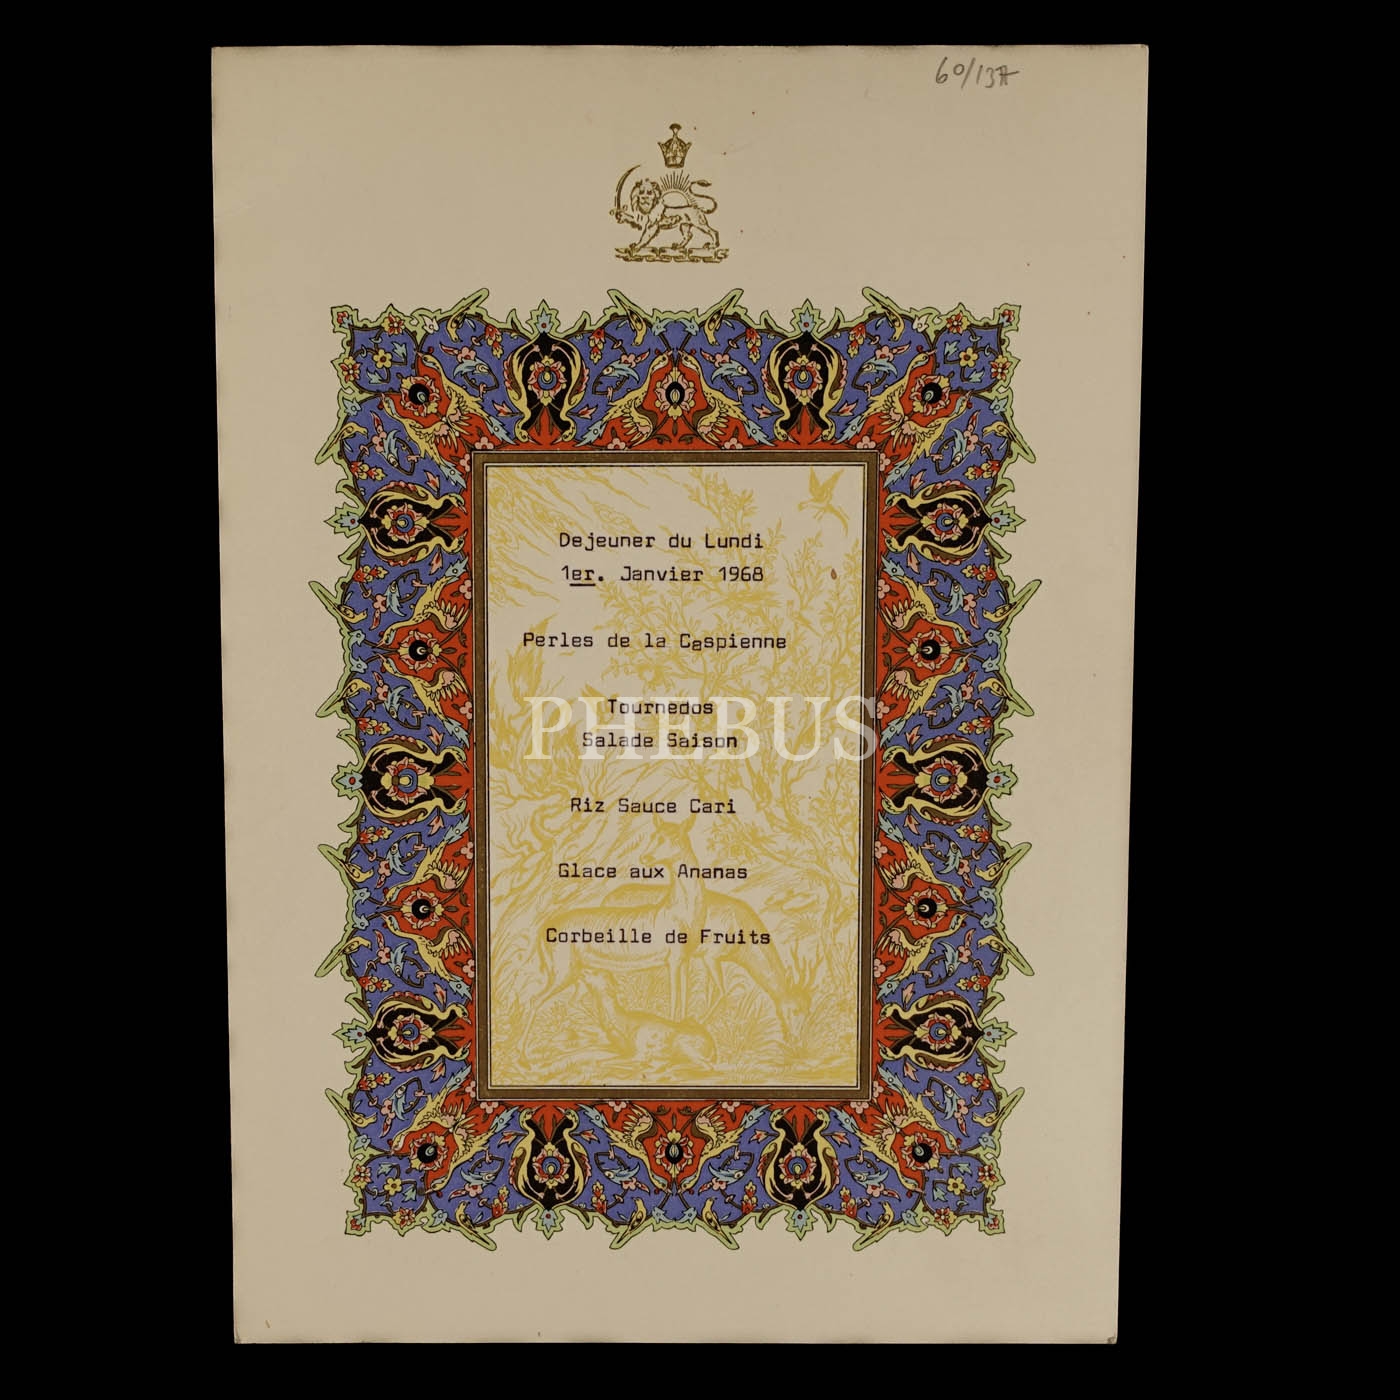 60/137
Dejeuner du Lundi
1er. Janvier 1968
Perles de la Caspienne
Tournedos
PHEBUS
Salade Saison
Riz Sauce Cari
Glace aux Ananas
Corbeille de Fruits